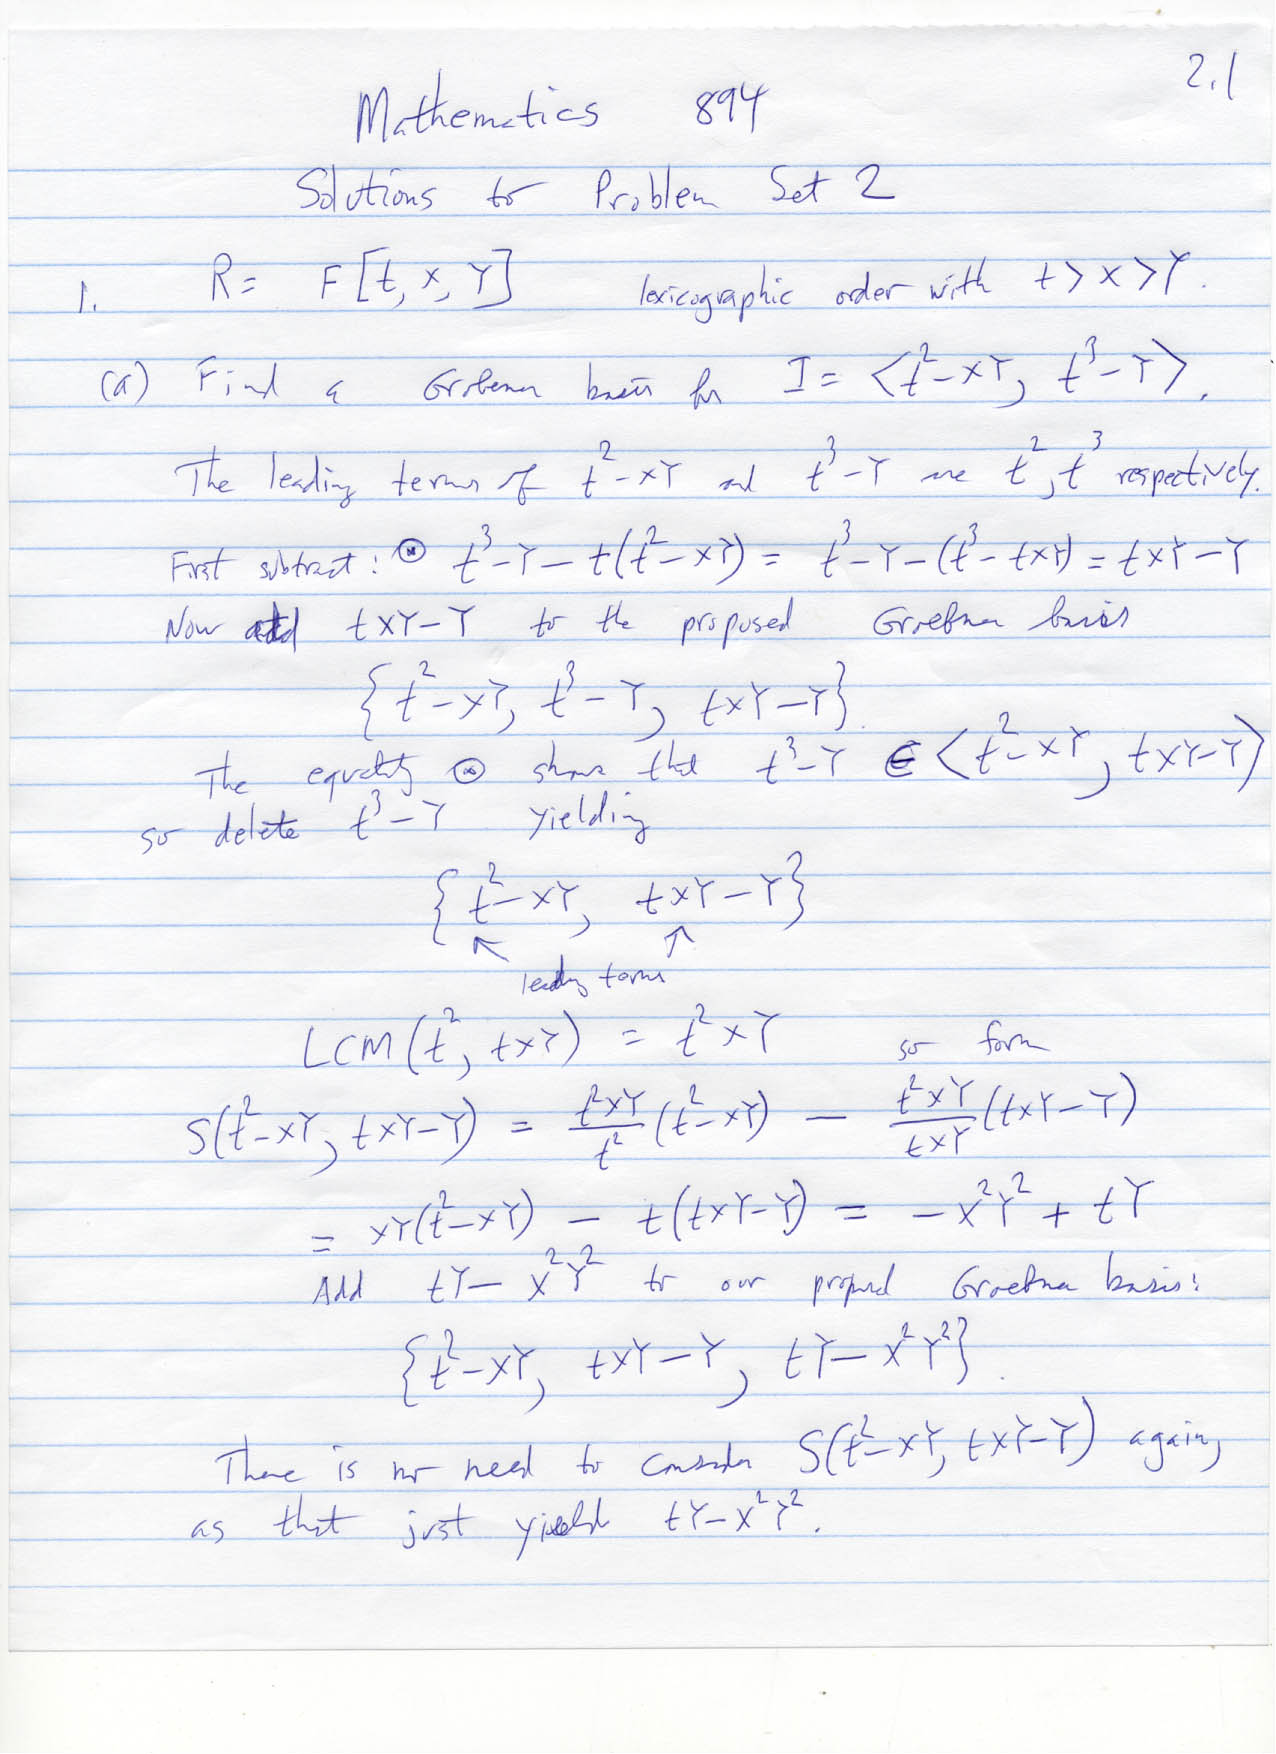 2.1
Mathematics 894
Solutions to Problem Set 2
1. R = F[t, x, Y] lexicographic order with t > x > Y.
(a) Find a Grobener basis for I = <t²-xY, t³-Y>.
The leading terms of t²-xY and t³-Y are t², t³ respectively.
First subtract: ⊛ t³-Y-t(t²-xY) = t³-Y-(t³-txY) = txY-Y
Now add txY-Y to the proposed Groebner basis
{t²-xY, t³-Y, txY-Y}.
The equality ⊛ shows that t³-Y ∈ <t²-xY, txY-Y>
so delete t³-Y yielding
{t²-xY, txY-Y}
↖ ↗
leading terms
LCM(t², txY) = t²xY so form
S(t²-xY, txY-Y) = t²xY/t² (t²-xY) - t²xY/txY (txY-Y)
= xY(t²-xY) - t(txY-Y) = -x²Y² + tY
Add tY-x²Y² to our proposed Groebner basis:
{t²-xY, txY-Y, tY-x²Y²}.
There is no need to consider S(t²-xY, txY-Y) again,
as that just yields tY-x²Y².